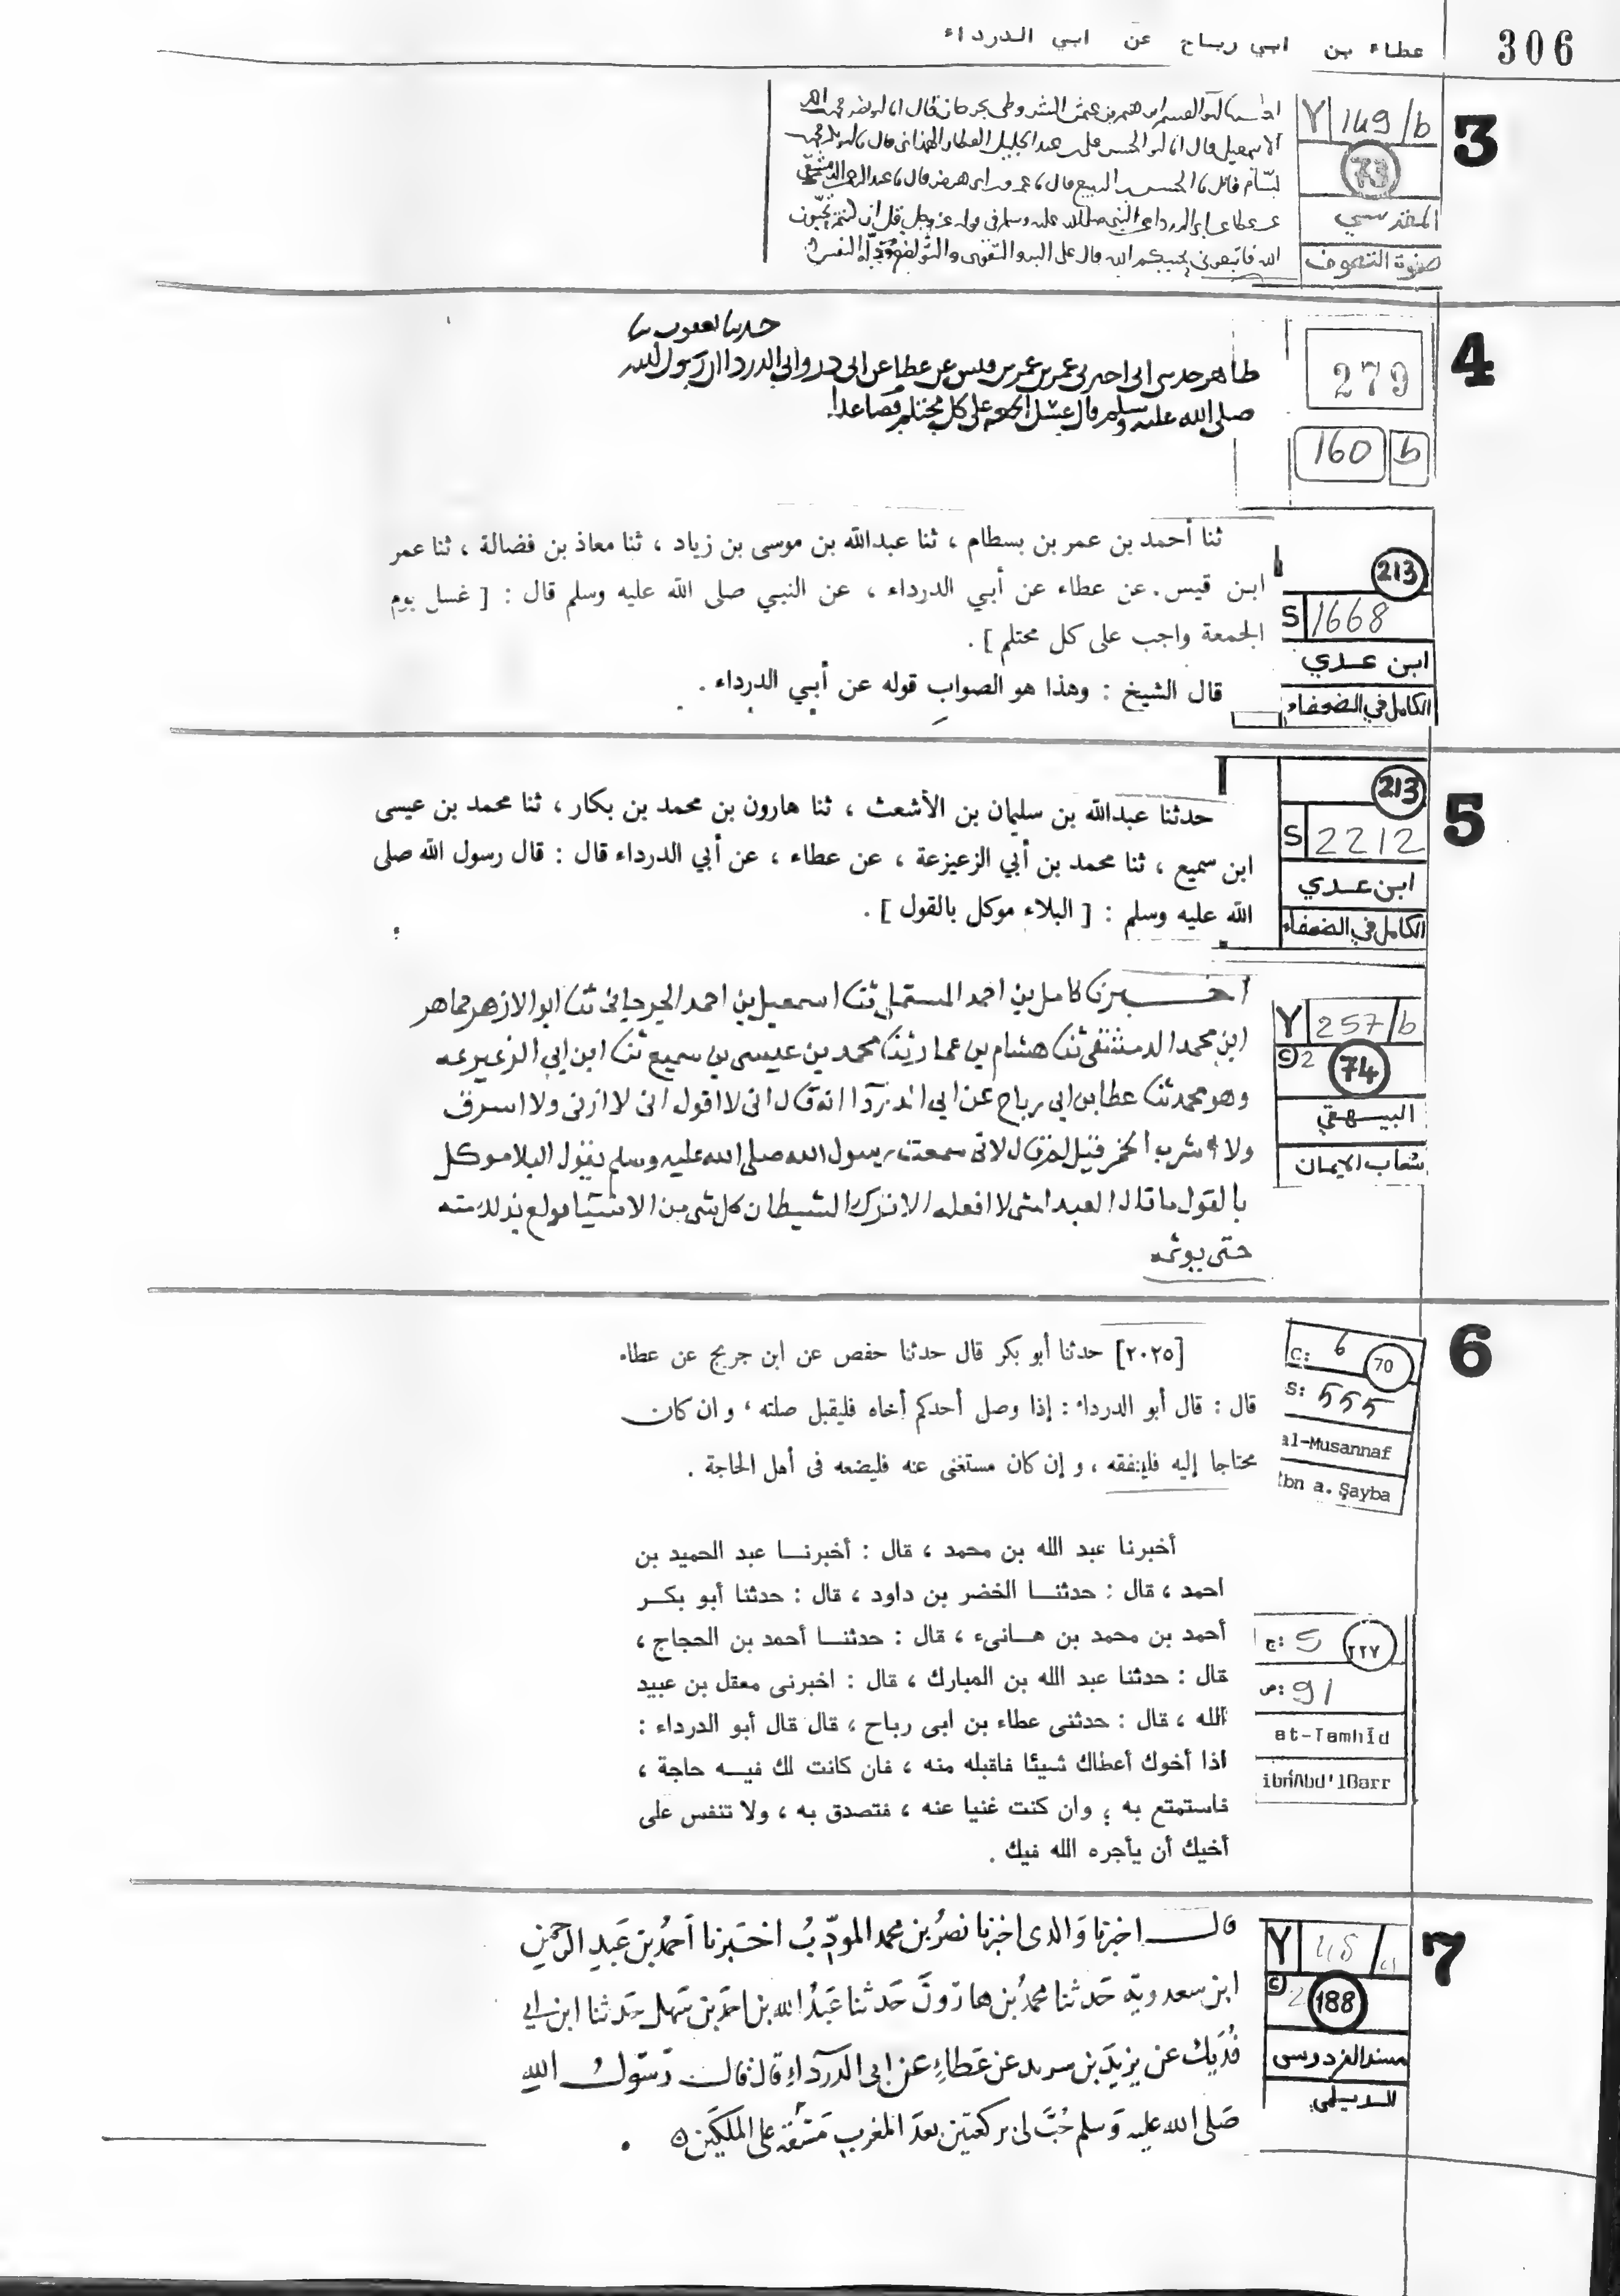 306
عطاء بن ابي رباح عن ابي الدرداء
3
Y 149/b
73
المقدسي
صفوة التصوف
قال
عن عطا عن ابي الدرداء عن النبي صلى الله عليه وسلم في قوله عز وجل قل ان كنتم تحبون
الله فاتبعوني يحببكم الله قال على البر والتقوى والتواضع وذلة النفس
4
279
160 b
حدثنا يعقوب نا
طاهر حدثني ابي اخبرني عمر بن قيس عن عطا عن ابي الدرداء ان رسول الله
صلى الله عليه وسلم قال غسل الجمعة على كل محتلم فصاعدا
213
S 1668
ابن عدي
الكامل في الضعفاء
ثنا أحمد بن عمر بن بسطام ، ثنا عبدالله بن موسى بن زياد ، ثنا معاذ بن فضالة ، ثنا عمر
ابن قيس . عن عطاء عن أبي الدرداء ، عن النبي صلى الله عليه وسلم قال : [ غسل يوم
الجمعة واجب على كل محتلم ] .
قال الشيخ : وهذا هو الصواب قوله عن أبي الدرداء .
5
213
S 2212
ابن عدي
الكامل في الضعفاء
حدثنا عبدالله بن سليمان بن الأشعث ، ثنا هارون بن محمد بن بكار ، ثنا محمد بن عيسى
ابن سميع ، ثنا محمد بن أبي الزعيزعة ، عن عطاء ، عن أبي الدرداء قال : قال رسول الله صلى
الله عليه وسلم : [ البلاء موكل بالقول ] .
Y 257/b
C 2 74
البيهقي
شعاب الايمان
اخبرنا كامل بن احمد المستملي ثنا اسمعيل بن احمد الجرجاني ثنا ابو الازهر جماهر
ابن محمد الدمشقي ثنا هشام بن عمار ثنا محمد بن عيسى بن سميع ثنا ابن ابي الزعيزعه
وهو محمد ثنا عطا بن ابي رباح عن ابي الدردا انه قال اني لا اقول اني لا ازني ولا اسرف
ولا اشرب الخمر فقيل لم قال لاني سمعت رسول الله صلى الله عليه وسلم يقول البلا موكل
بالقول ما قال العبد لشي لا افعله الا ترك الشيطان كل شي من الاشيا مولع بذلك منه
حتى يوثمه
6
C: 6 70
S: 555
al-Musannaf
Ibn a. Şayba
[٢٠٢٥] حدثنا أبو بكر قال حدثنا حفص عن ابن جريج عن عطاء
قال : قال أبو الدرداء : إذا وصل أحدكم أخاه فليقبل صلته ، و ان كان
محتاجا إليه فلينفقه ، و إن كان مستغنى عنه فليضعه فى أهل الحاجة .
ج: 5 ٢٢٧
ص: 91
at-Tamhîd
ibn Abd'lBarr
أخبرنا عبد الله بن محمد ، قال : أخبرنا عبد الحميد بن
احمد ، قال : حدثنا الخضر بن داود ، قال : حدثنا أبو بكر
أحمد بن محمد بن هانىء ، قال : حدثنا أحمد بن الحجاج ،
قال : حدثنا عبد الله بن المبارك ، قال : اخبرنى معقل بن عبيد
الله ، قال : حدثنى عطاء بن ابى رباح ، قال قال أبو الدرداء :
اذا أخوك أعطاك شيئا فاقبله منه ، فان كانت لك فيه حاجة ،
فاستمتع به ؛ وان كنت غنيا عنه ، فتصدق به ، ولا تنفس على
أخيك أن يأجره الله فيك .
7
Y
C 2 188
مسند الفردوس
للديلمي
قال اخبرنا والدى اخبرنا نصر بن محمد المودّب اخبرنا احمد بن عبد الرحمن
ابن سعدوية حدثنا محمد بن هارون حدثنا عبد الله بن احمد بن سهل حدثنا ابن ابي
فديك عن يزيد بن عن عطاء عن ابي الدرداء قال قال رسول الله
صلى الله عليه وسلم حبّ لى ركعتين بعد المغرب مشقة على الملكين